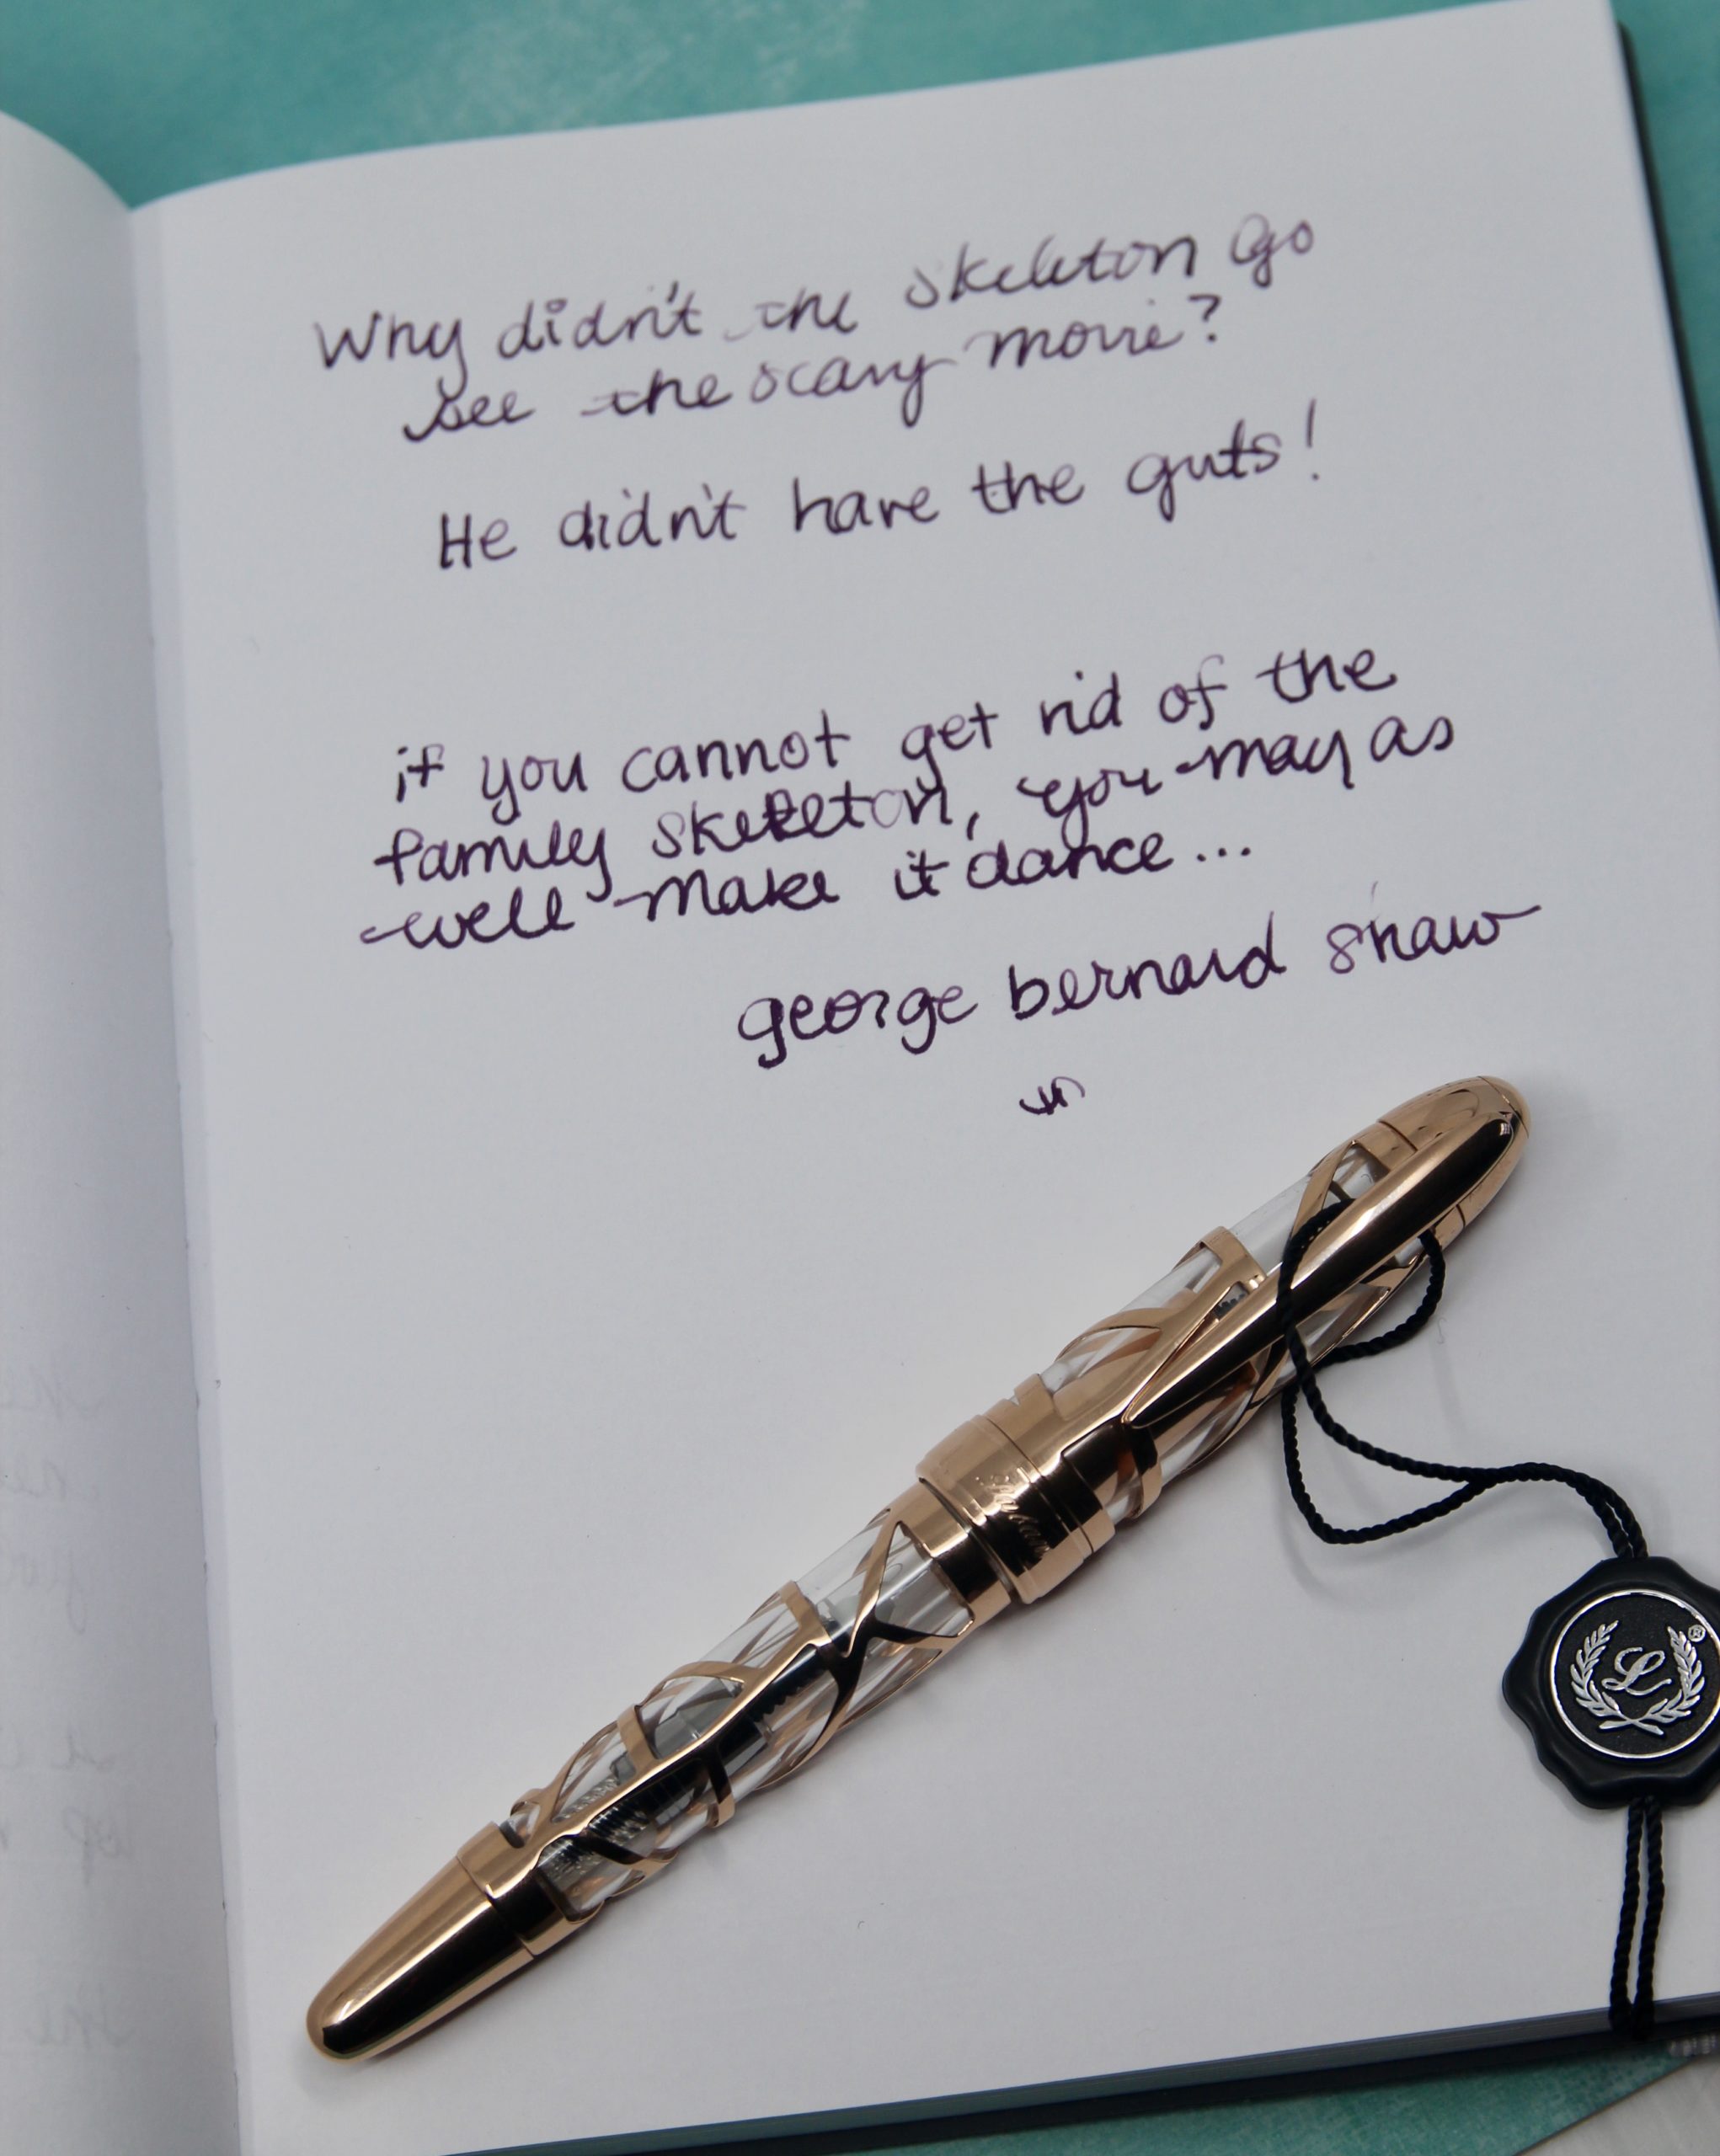 Why didn't the skeleton go
see the scary movie?
He didn't have the guts!
if you cannot get rid of the
family skeleton, you may as
well make it dance...
george bernard shaw
L
®